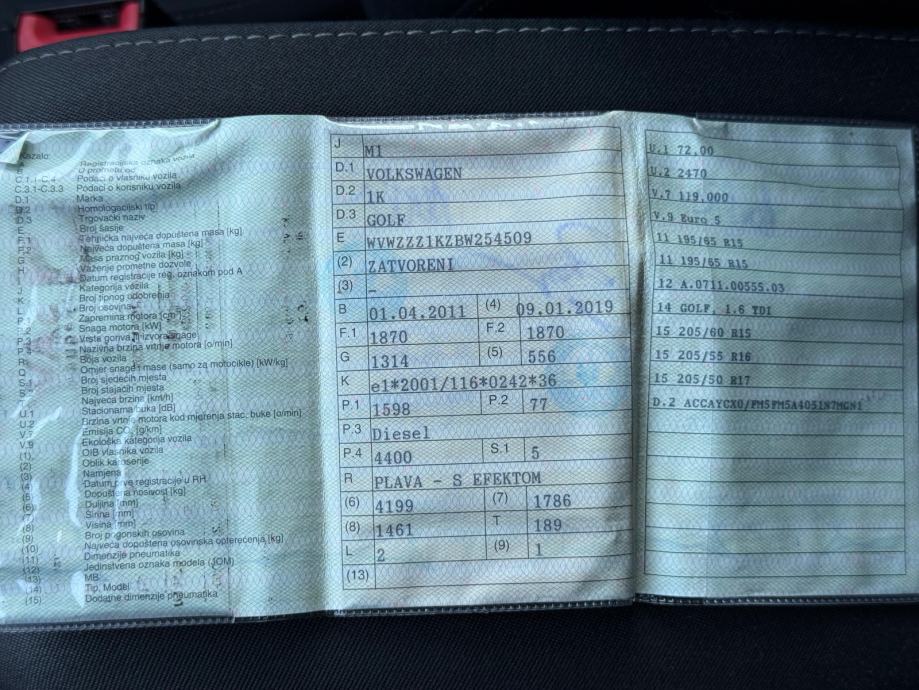 Kazalo:
A Registracijska oznaka vozila
B U prometu od
C.1.1-C.4 Podaci o vlasniku vozila
C.3.1-C.3.3 Podaci o korisniku vozila
D.1 Marka
D.2 Homologacijski tip
D.3 Trgovački naziv
E Broj šasije
F.1 Tehnička najveća dopuštena masa [kg]
F.2 Najveća dopuštena masa [kg]
G Masa praznog vozila [kg]
H Važenje prometne dozvole
I Datum registracije reg. oznakom pod A
J Kategorija vozila
K Broj tipnog odobrenja
L Broj osovina
P.1 Zapremina motora [cm³]
P.2 Snaga motora [kW]
P.3 Vrsta goriva / izvora snage
P.4 Nazivna brzina vrtnje motora [o/min]
R Boja vozila
Q Omjer snage i mase (samo za motocikle) [kW/kg]
S.1 Broj sjedećih mjesta
S.2 Broj stajaćih mjesta
T Najveća brzina [km/h]
U.1 Stacionarna buka [dB]
U.2 Brzina vrtnje motora kod mjerenja stac. buke [o/min]
V.7 Emisija CO₂ [g/km]
V.9 Ekološka kategorija vozila
(1) OIB vlasnika vozila
(2) Oblik karoserije
(3) Namjena
(4) Datum prve registracije u RH
(5) Dopuštena nosivost [kg]
(6) Duljina [mm]
(7) Širina [mm]
(8) Visina [mm]
(9) Broj pogonskih osovina
(10) Najveća dopuštena osovinska opterećenja [kg]
(11) Dimenzije pneumatika
(12) Jedinstvena oznaka modela (JOM)
(13) MB
(14) Tip, Model
(15) Dodatne dimenzije pneumatika
J M1
D.1 VOLKSWAGEN
D.2 1K
D.3 GOLF
E WVWZZZ1KZBW254509
(2) ZATVORENI
(3) –
B 01.04.2011 (4) 09.01.2019
F.1 1870 F.2 1870
G 1314 (5) 556
K e1*2001/116*0242*36
P.1 1598 P.2 77
P.3 Diesel
P.4 4400 S.1 5
R PLAVA - S EFEKTOM
(6) 4199 (7) 1786
(8) 1461 T 189
L 2 (9) 1
(13)
U.1 72.00
U.2 2470
V.7 119.000
V.9 Euro 5
11 195/65 R15
11 195/65 R15
12 A.0711.00555.03
14 GOLF, 1.6 TDI
15 205/60 R15
15 205/55 R16
15 205/50 R17
D.2 ACCAYCX0/FM5FM5A4051N7MGN1